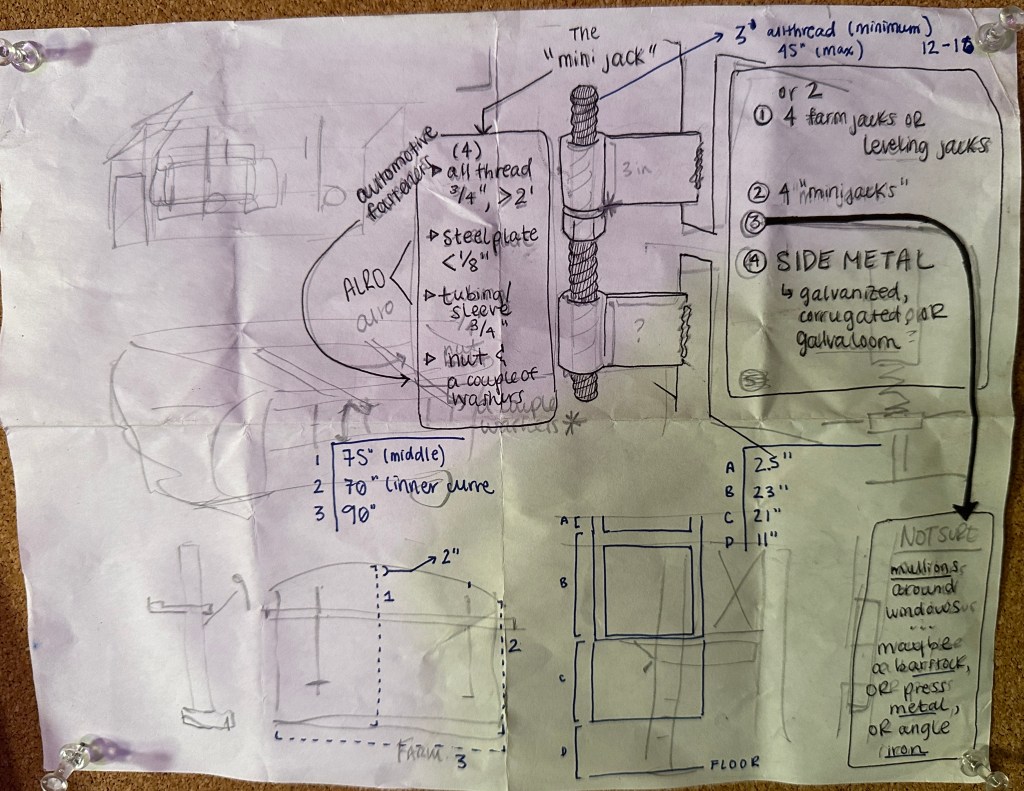 The
"mini jack"
3" allthread (minimum)
45" (max)
12-18
automotive
fasteners
(4)
▷ all thread
3/4", >2'
▷ steel plate
<1/8"
▷ tubing/
sleeve
3/4"
▷ nut &
a couple of
washers
ALRO
alro
nut
a couple
washers *
3 in
*
?
or 2
① 4 farm jacks OR
leveling jacks
② 4 "minijacks"
③
④ SIDE METAL
↳ galvanized,
corrugated, OR
galvaloom?
⑤
1 75" (middle)
2 70" (inner curve
3 90"
A 2.5"
B 23"
C 21"
D 11"
NOT SURE
mullions
around
windows
...
maybe
a barstock,
OR press
metal,
OR angle
iron
2"
1
2
3
A
B
C
D
FLOOR